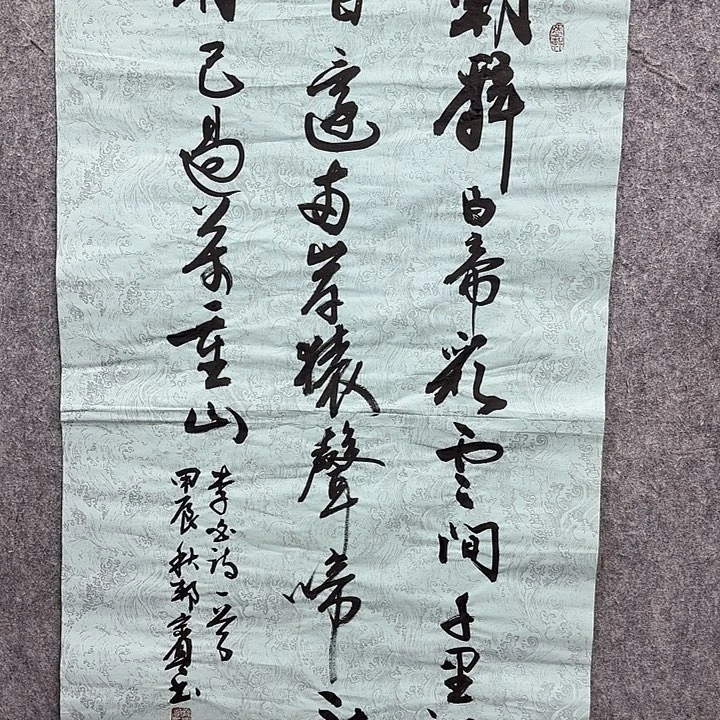 朝辭白帝彩雲間千里
日還兩岸猿聲啼
舟已過萬重山
李白詩一首
甲辰秋鄒寶書